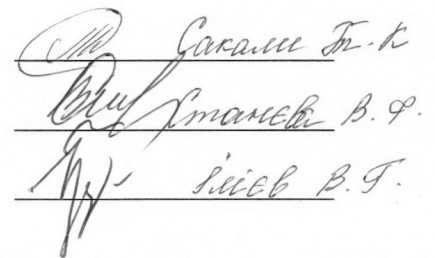 Сакали Т. К
Станєва В. Ф.
Ілієв В. Г.